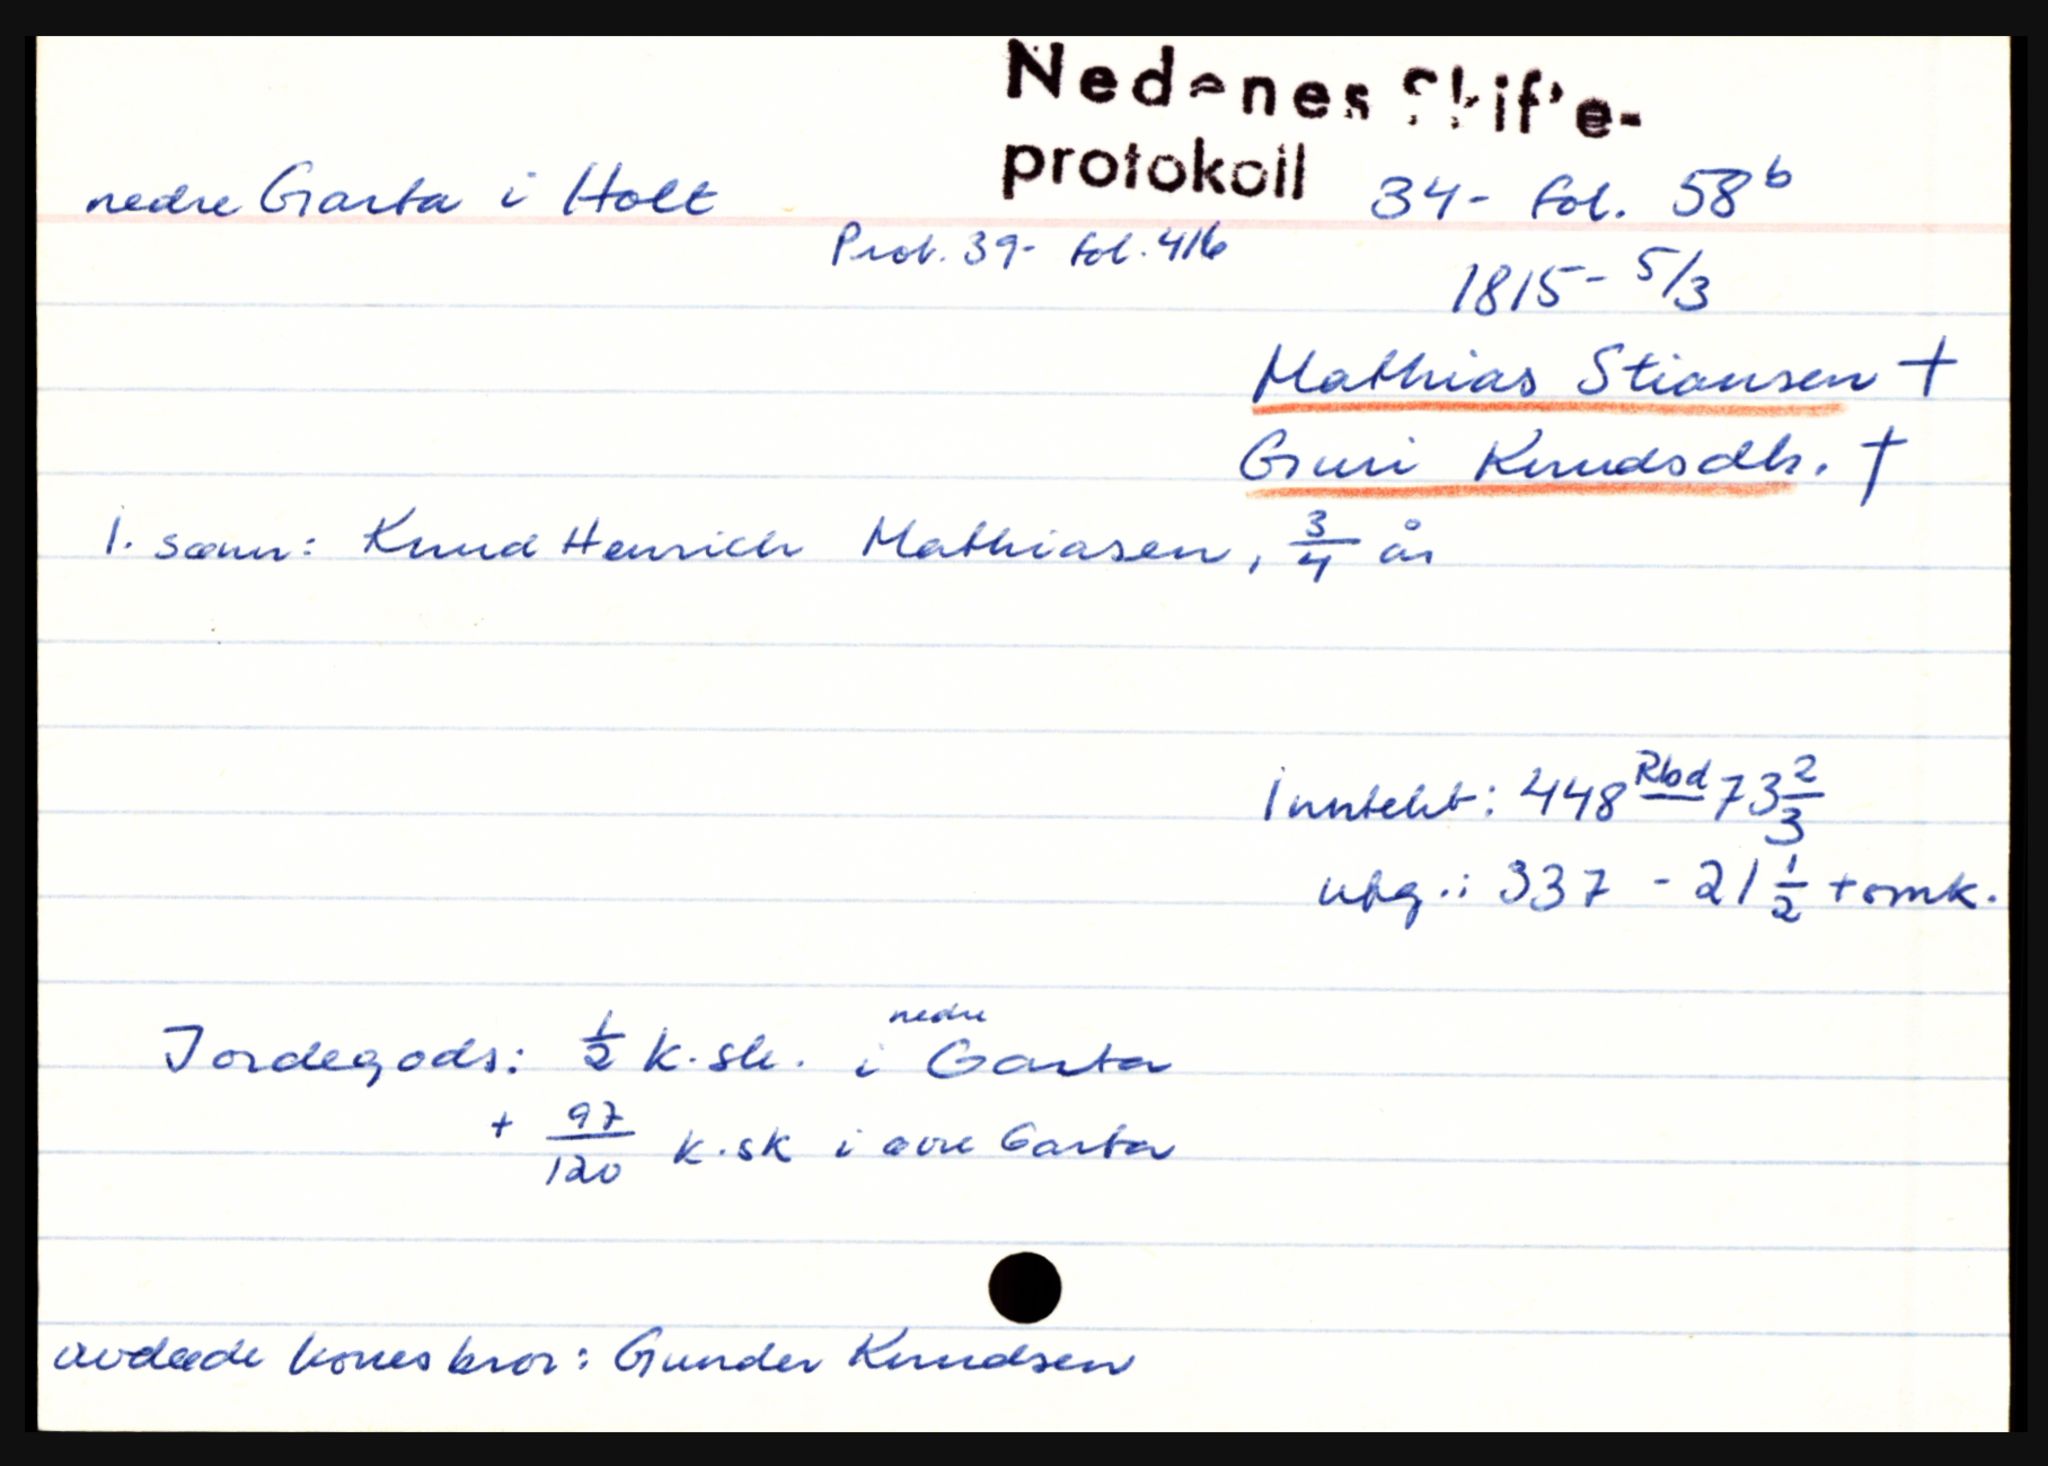 Nedenes Skifte-
protokoll
nedre Garta i Holt 34- fol. 58b
Prot. 39- fol. 416
1815- 5/3
Mathias Stiansen †
Guri Knudsdtr. †
1. sønn: Knud Henrich Mathiasen, 3/4 år
Inntekt: 448 Rbd 73 2/3
utg.: 337 - 21 1/2 + omk.
Jordegods: 1/2 k.sk. i nedre Garta
+ 97/120 k.sk i øvre Garta
avdøde kones bror: Gunder Knudsen